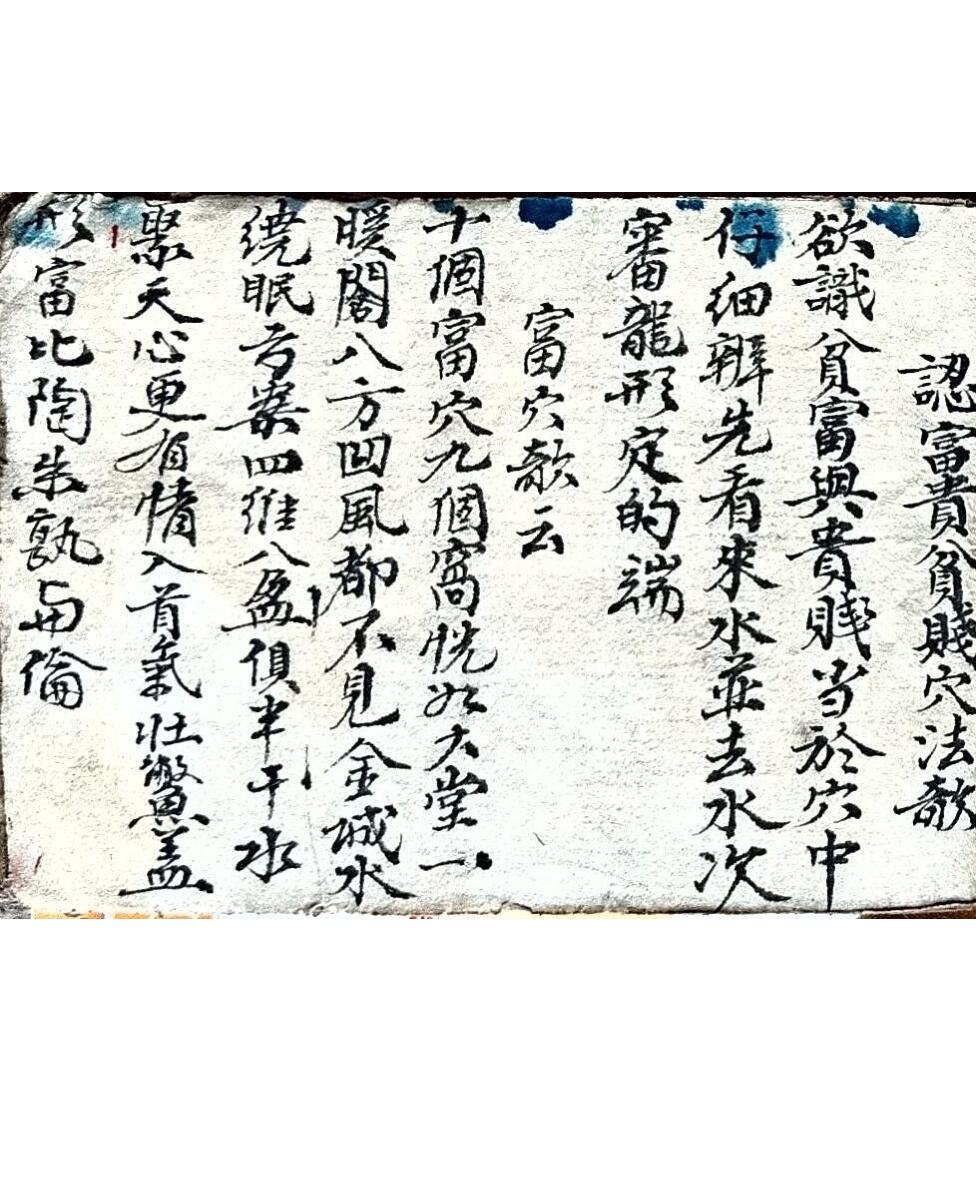 認富貴貧賤穴法歌
欲識貧富與貴賤当於穴中
仔細辨先看來水並去水次
審龍形定的端
富穴歌云
十個富穴九個窩恍如大堂一
暖閣八方凹風都不見金城水
繞眠弓案四維八俱半千水
聚天心更有情入首氣壯鱉蓋
形富比陶朱孰与倫